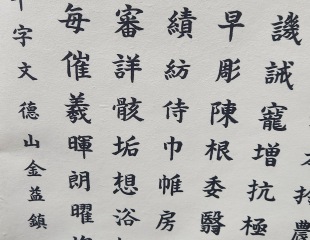 譏誡寵增抗極
早彫陳根委翳
績紡侍巾帷房
審詳骸垢想浴
每催羲暉朗曜
千字文 德山金益鎮